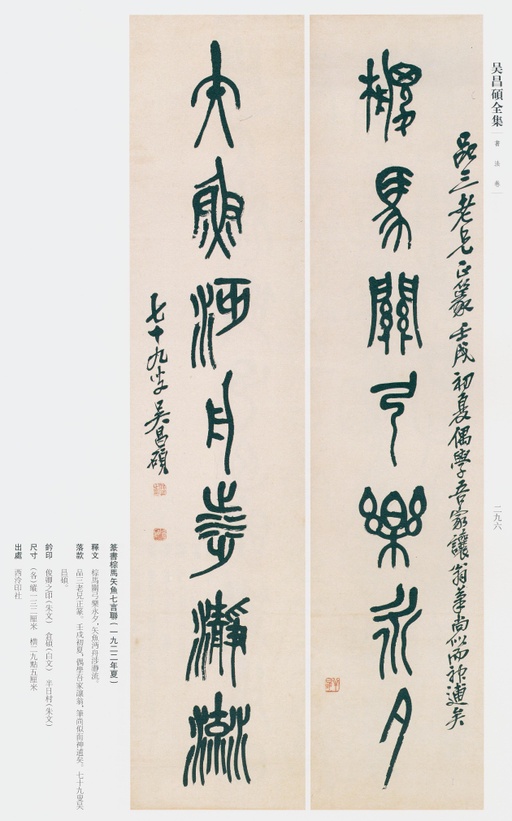 吴昌碩全集 書法卷
二九六
品三老兄正篆壬戌初夏偶學吾家讓翁筆尚似而神逋矣
椶馬關弓樂永夕
矢魚沔舟涉瀞流
七十九叟吳昌碩
篆書棕馬矢魚七言聯（一九二二年夏）
釋文 棕馬關弓樂永夕，矢魚沔舟涉瀞流。
落款 品三老兄正篆。壬戌初夏，偶學吾家讓翁，筆尚似而神逋矣。七十九叟吳
昌碩。
鈐印 俊卿之印（朱文） 倉碩（白文） 半日村（朱文）
尺寸 （各）縱一三二厘米 橫二九點五厘米
出處 西泠印社